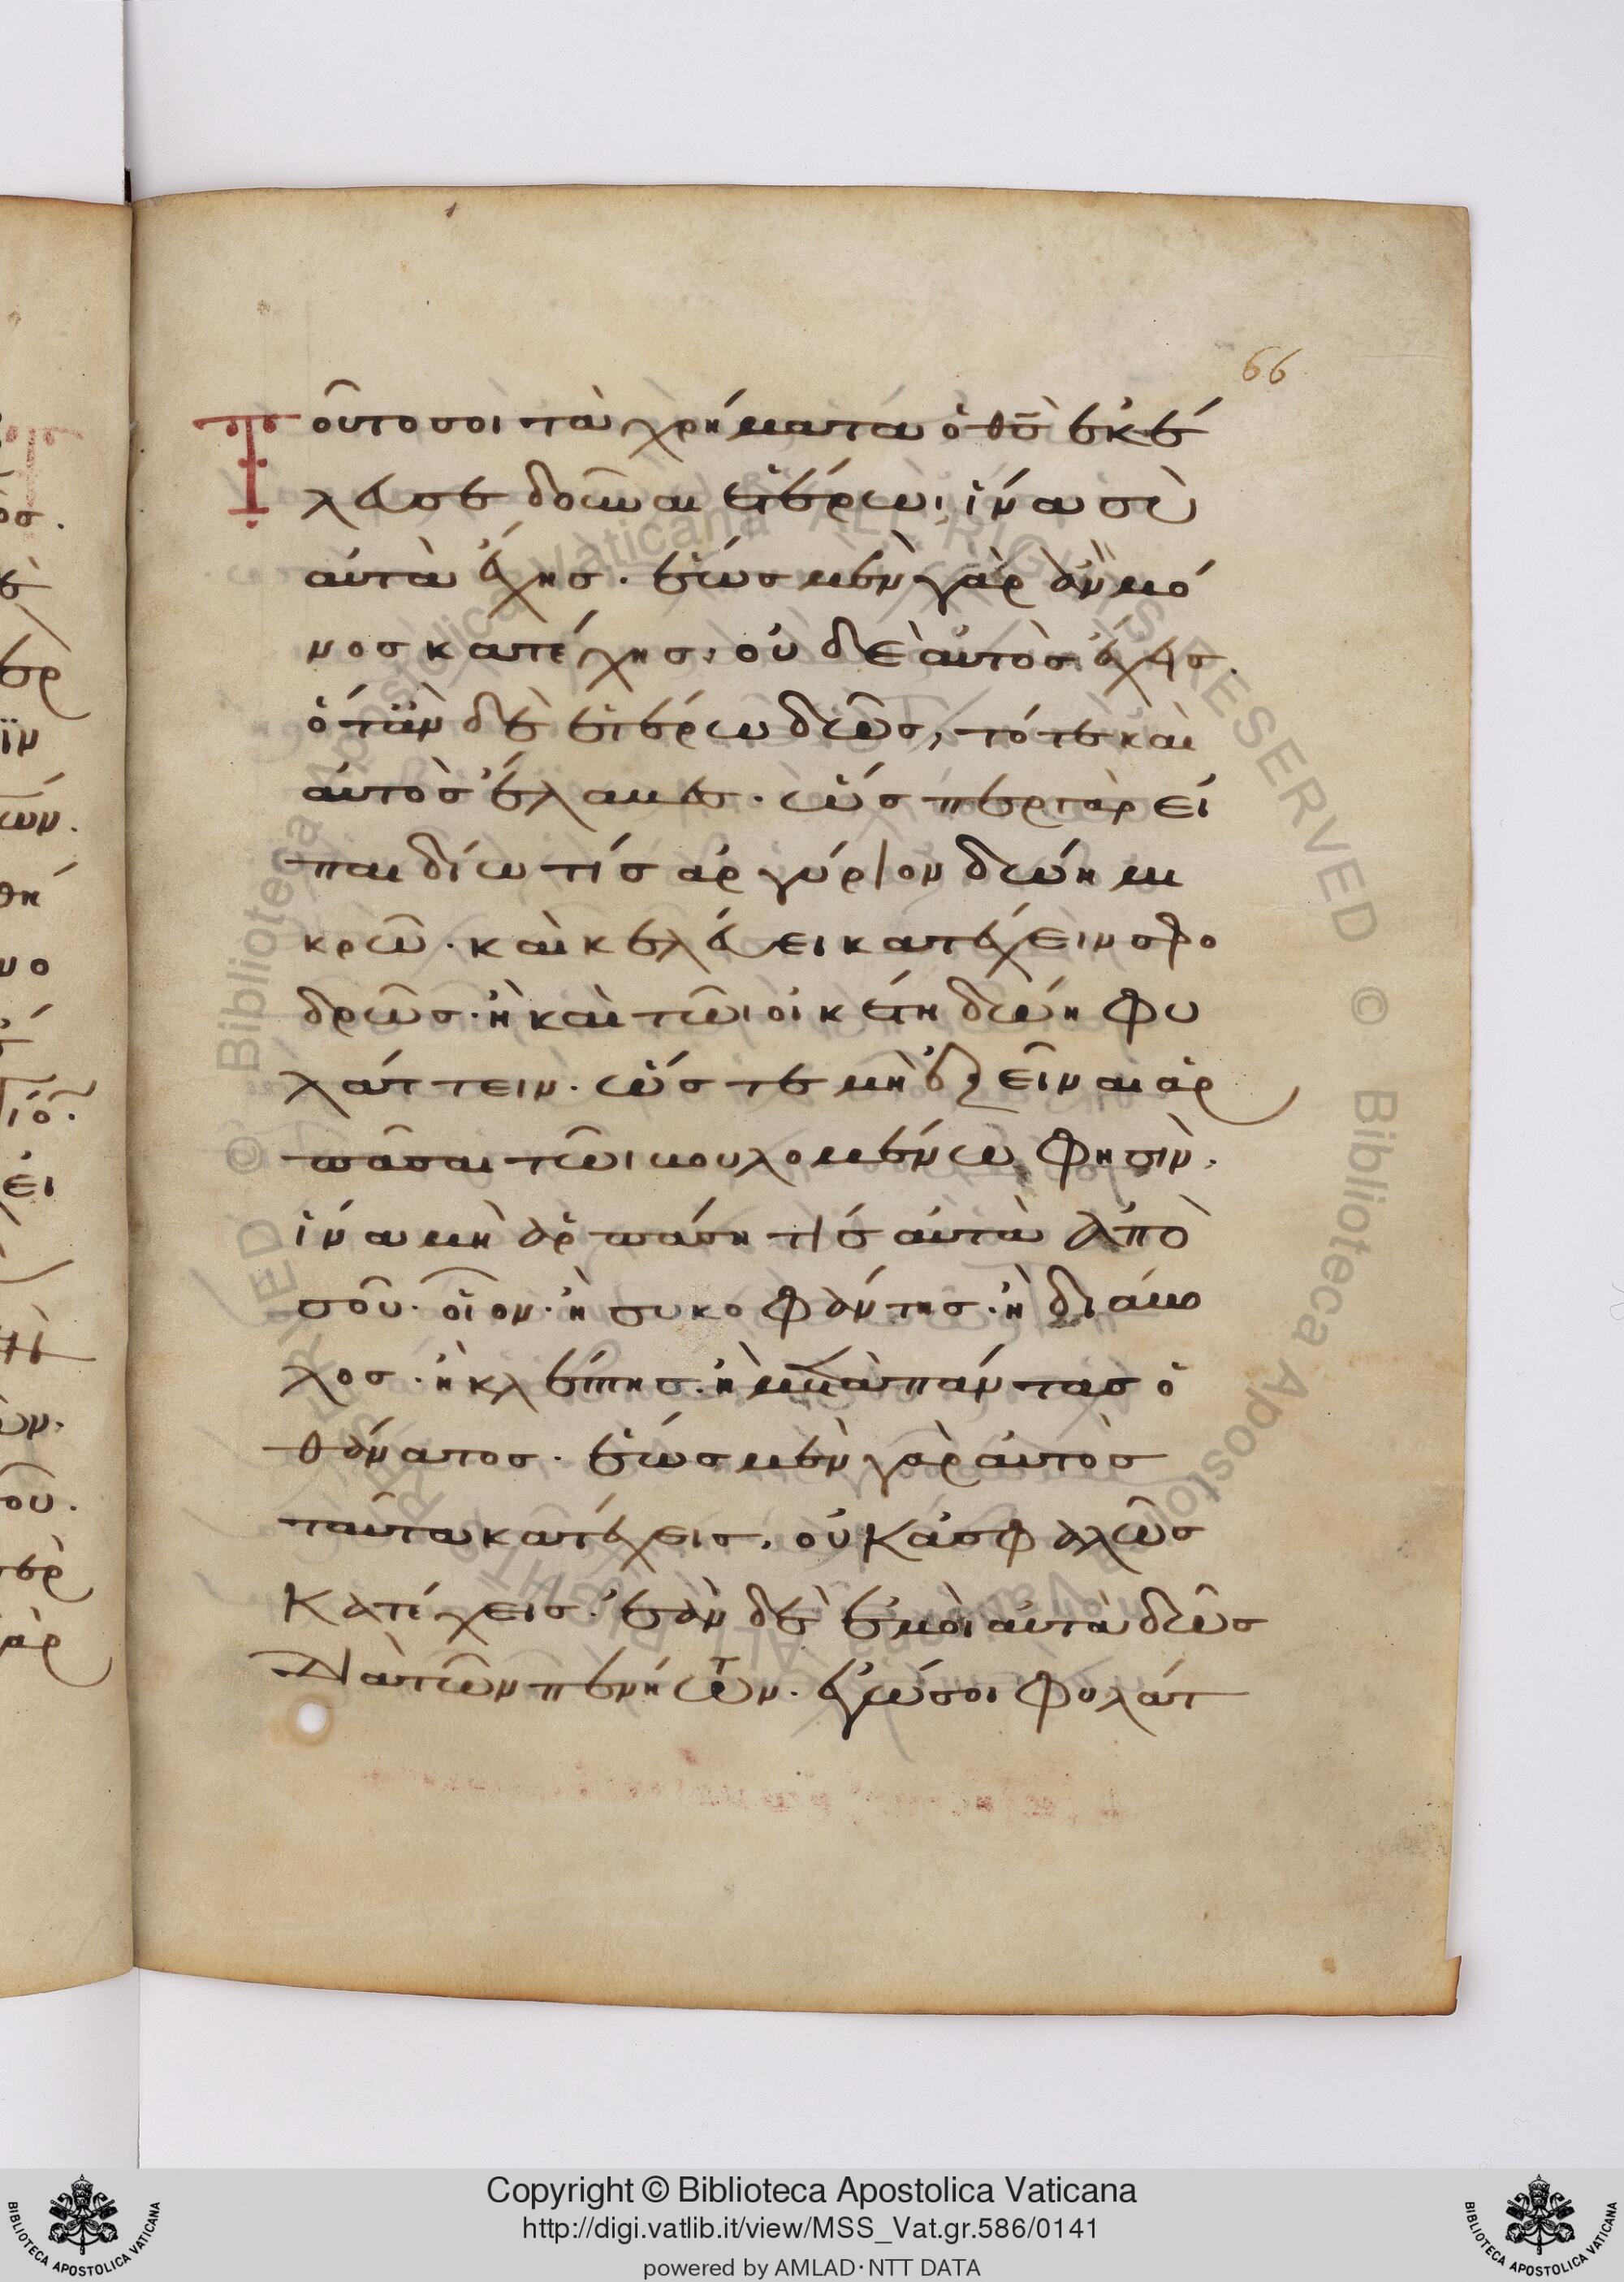 66
Τοῦτο σοι τὰ χρήματα ὁ θς̅ ἐκέ
λευσε δοῦναι ἑτέρω, ἵνα σὺ
αὐτὰ ἔχης. ἕως μὲν γὰρ ἂν μό
νος κατέχης, οὐδὲ αὐτὸς ἔχεις.
ὅταν δὲ ἑτέρω δῶς, τότε καὶ
αὐτὸς ἔλαβες. ὥσπερ γὰρ εἰ
παιδίω τίς ἀργύριον δώη μι
κρῶ. καὶ κελεύει κατέχειν σφο
δρῶς. ἢ καὶ τῶι οἰκέτη δώη φυ
λάττειν. ὥστε μὴ ἐξεῖναι ἁρ
πᾶσαι τῶι βουλομένω φησὶν,
ἵνα μὴ ἁρπάση τίς αὐτὰ ἀπὸ
σοῦ. οἷον. ἢ συκοφάντης. ἢ διάβο
λος. ἢ κλέπτης. ἢ μετὰ πάντας ὁ
θάνατος. ἕως μὲν γὰρ αὐτὸς
ταῦτα κατέχεις, οὐκ ἀσφαλῶς
κατέχεις. ἐὰν δὲ ἐμοὶ αὐτὰ δῶς
διὰ τῶν πενήτων. ἐγώ σοι φυλάτ
Copyright © Biblioteca Apostolica Vaticana
http://digi.vatlib.it/view/MSS_Vat.gr.586/0141
powered by AMLAD·NTT DATA
BIBLIOTECA APOSTOLICA VATICANA
BIBLIOTECA APOSTOLICA VATICANA